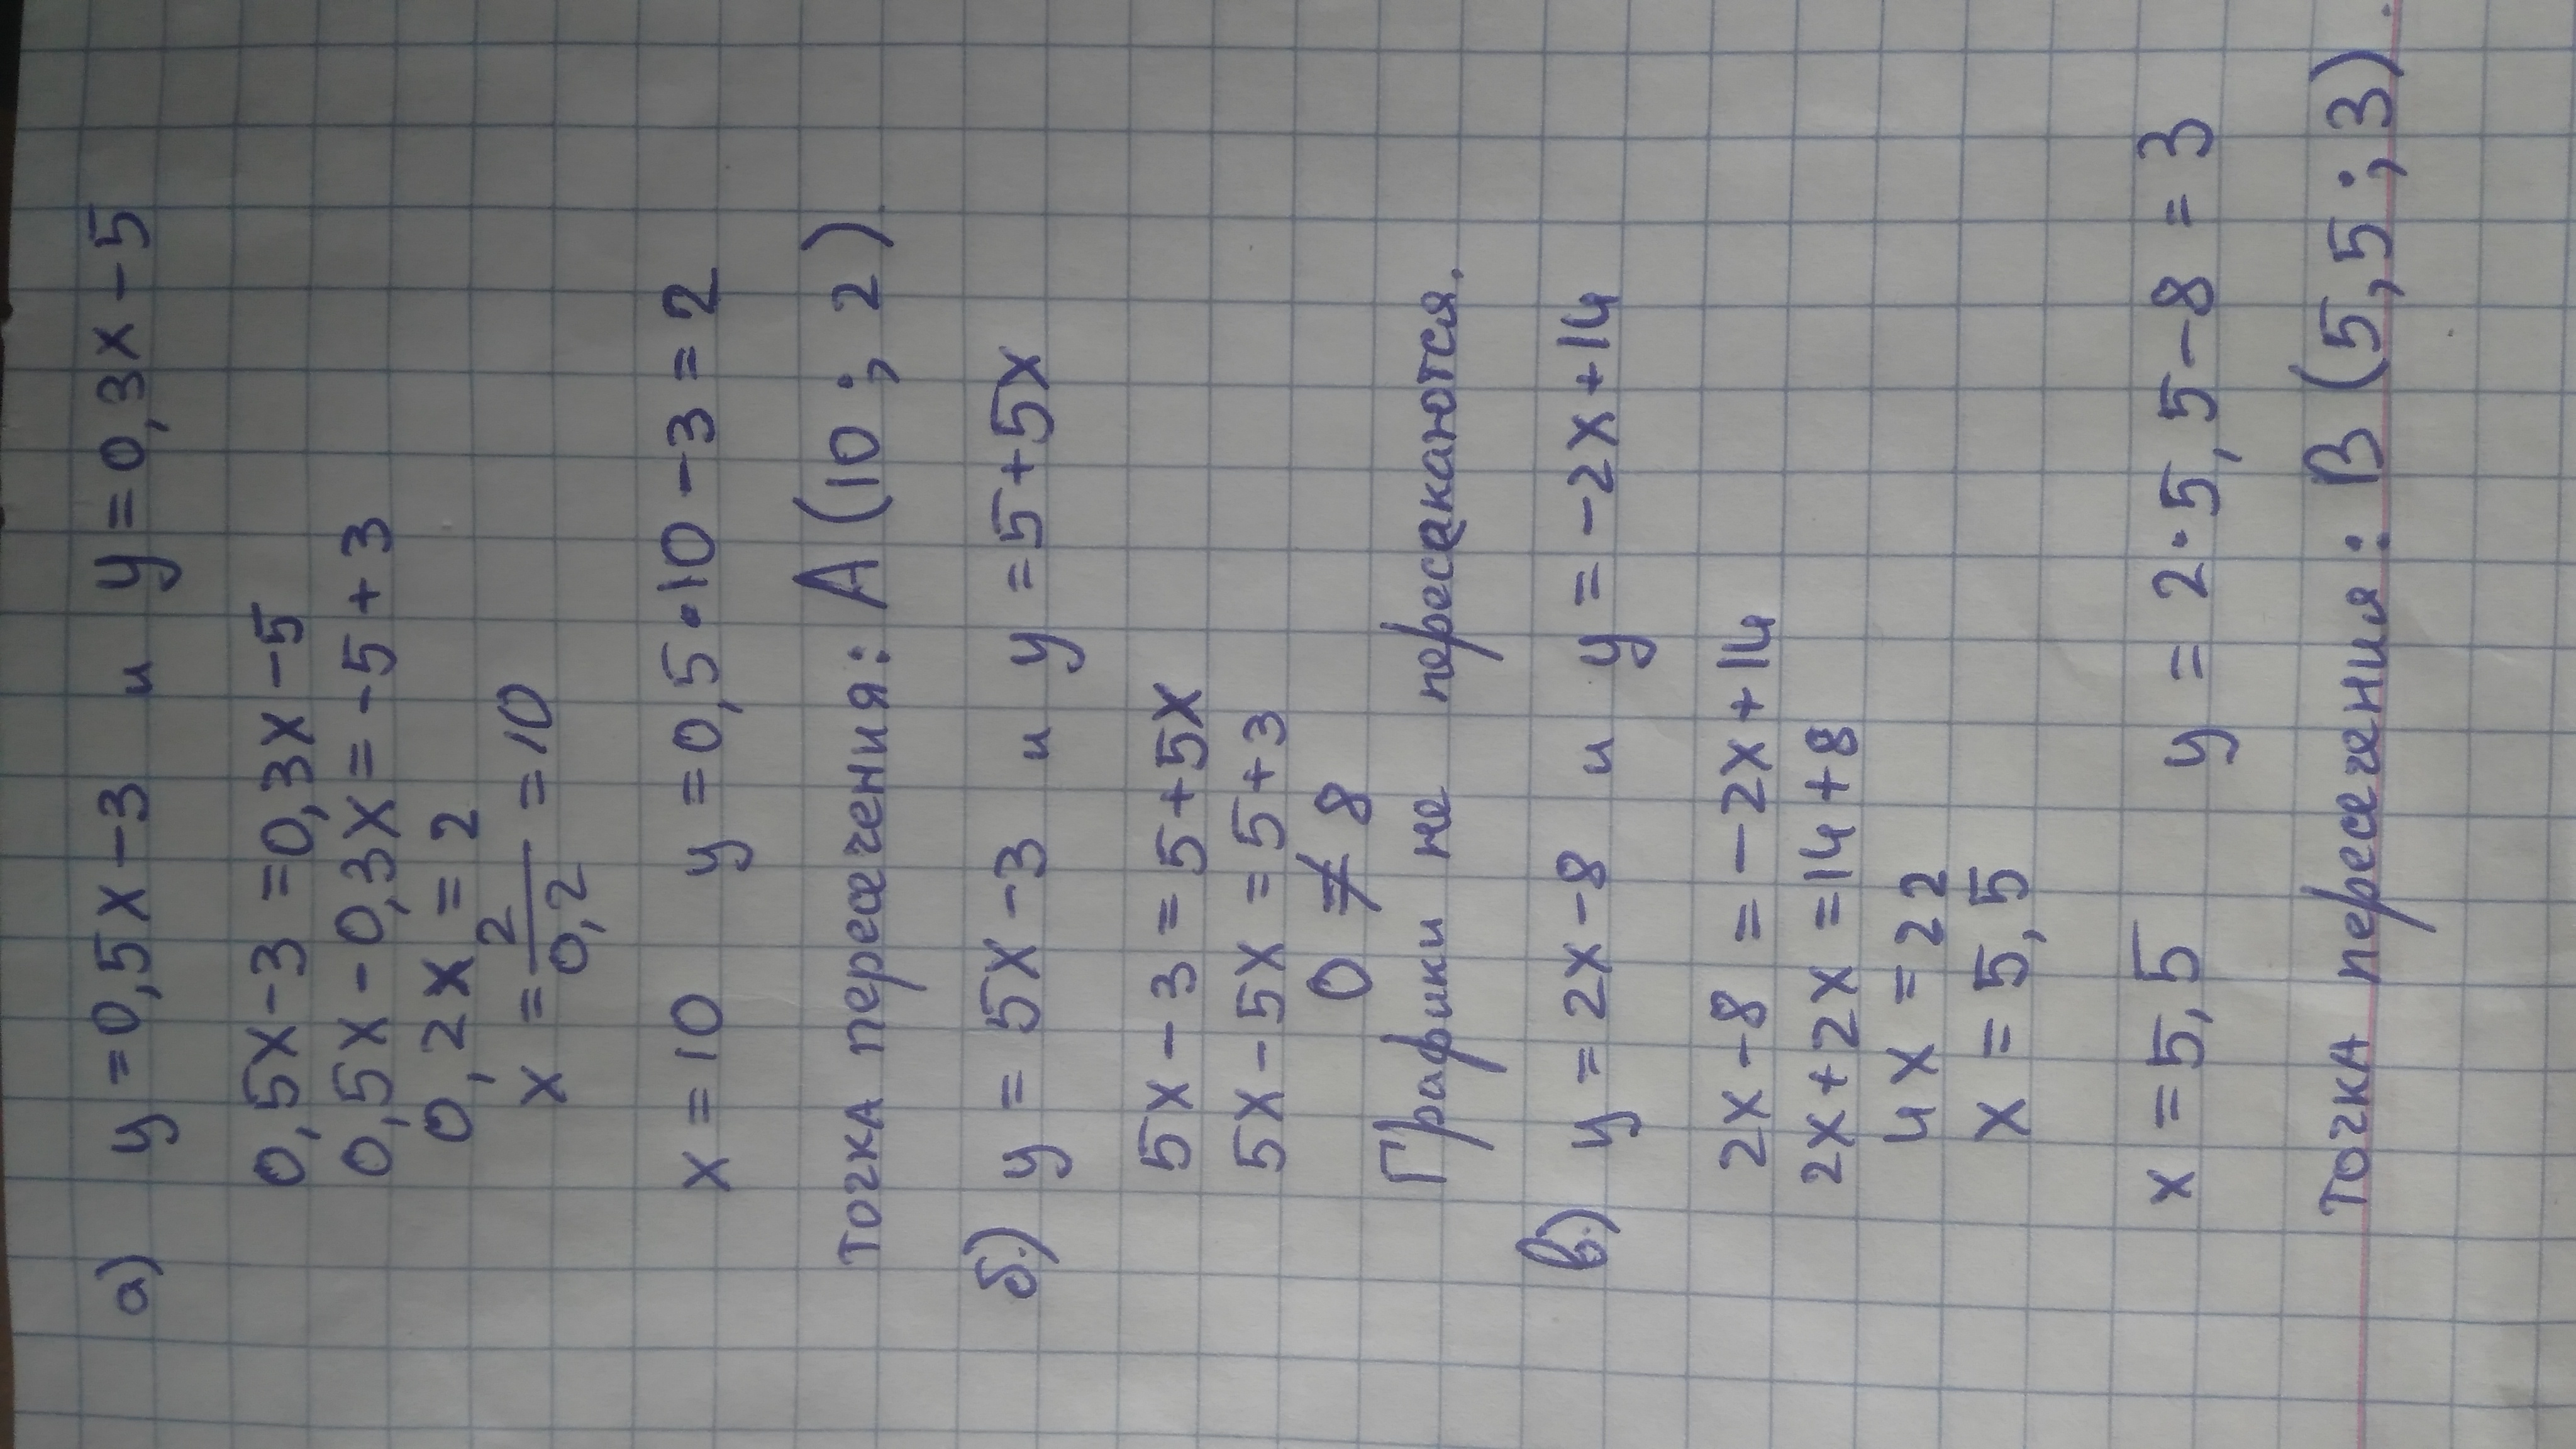 а) y = 0,5x - 3 и y = 0,3x - 5
0,5x - 3 = 0,3x - 5
0,5x - 0,3x = -5 + 3
0,2x = 2
x = 2/0,2 = 10
x = 10 y = 0,5 • 10 - 3 = 2
точка пересечения: A (10 ; 2)
б.) y = 5x - 3 и y = 5 + 5x
5x - 3 = 5 + 5x
5x - 5x = 5 + 3
0 ≠ 8
Графики не пересекаются.
в.) y = 2x - 8 и y = -2x + 14
2x - 8 = -2x + 14
2x + 2x = 14 + 8
4x = 22
x = 5,5
x = 5,5 y = 2 • 5,5 - 8 = 3
точка пересечения: B (5,5 ; 3).